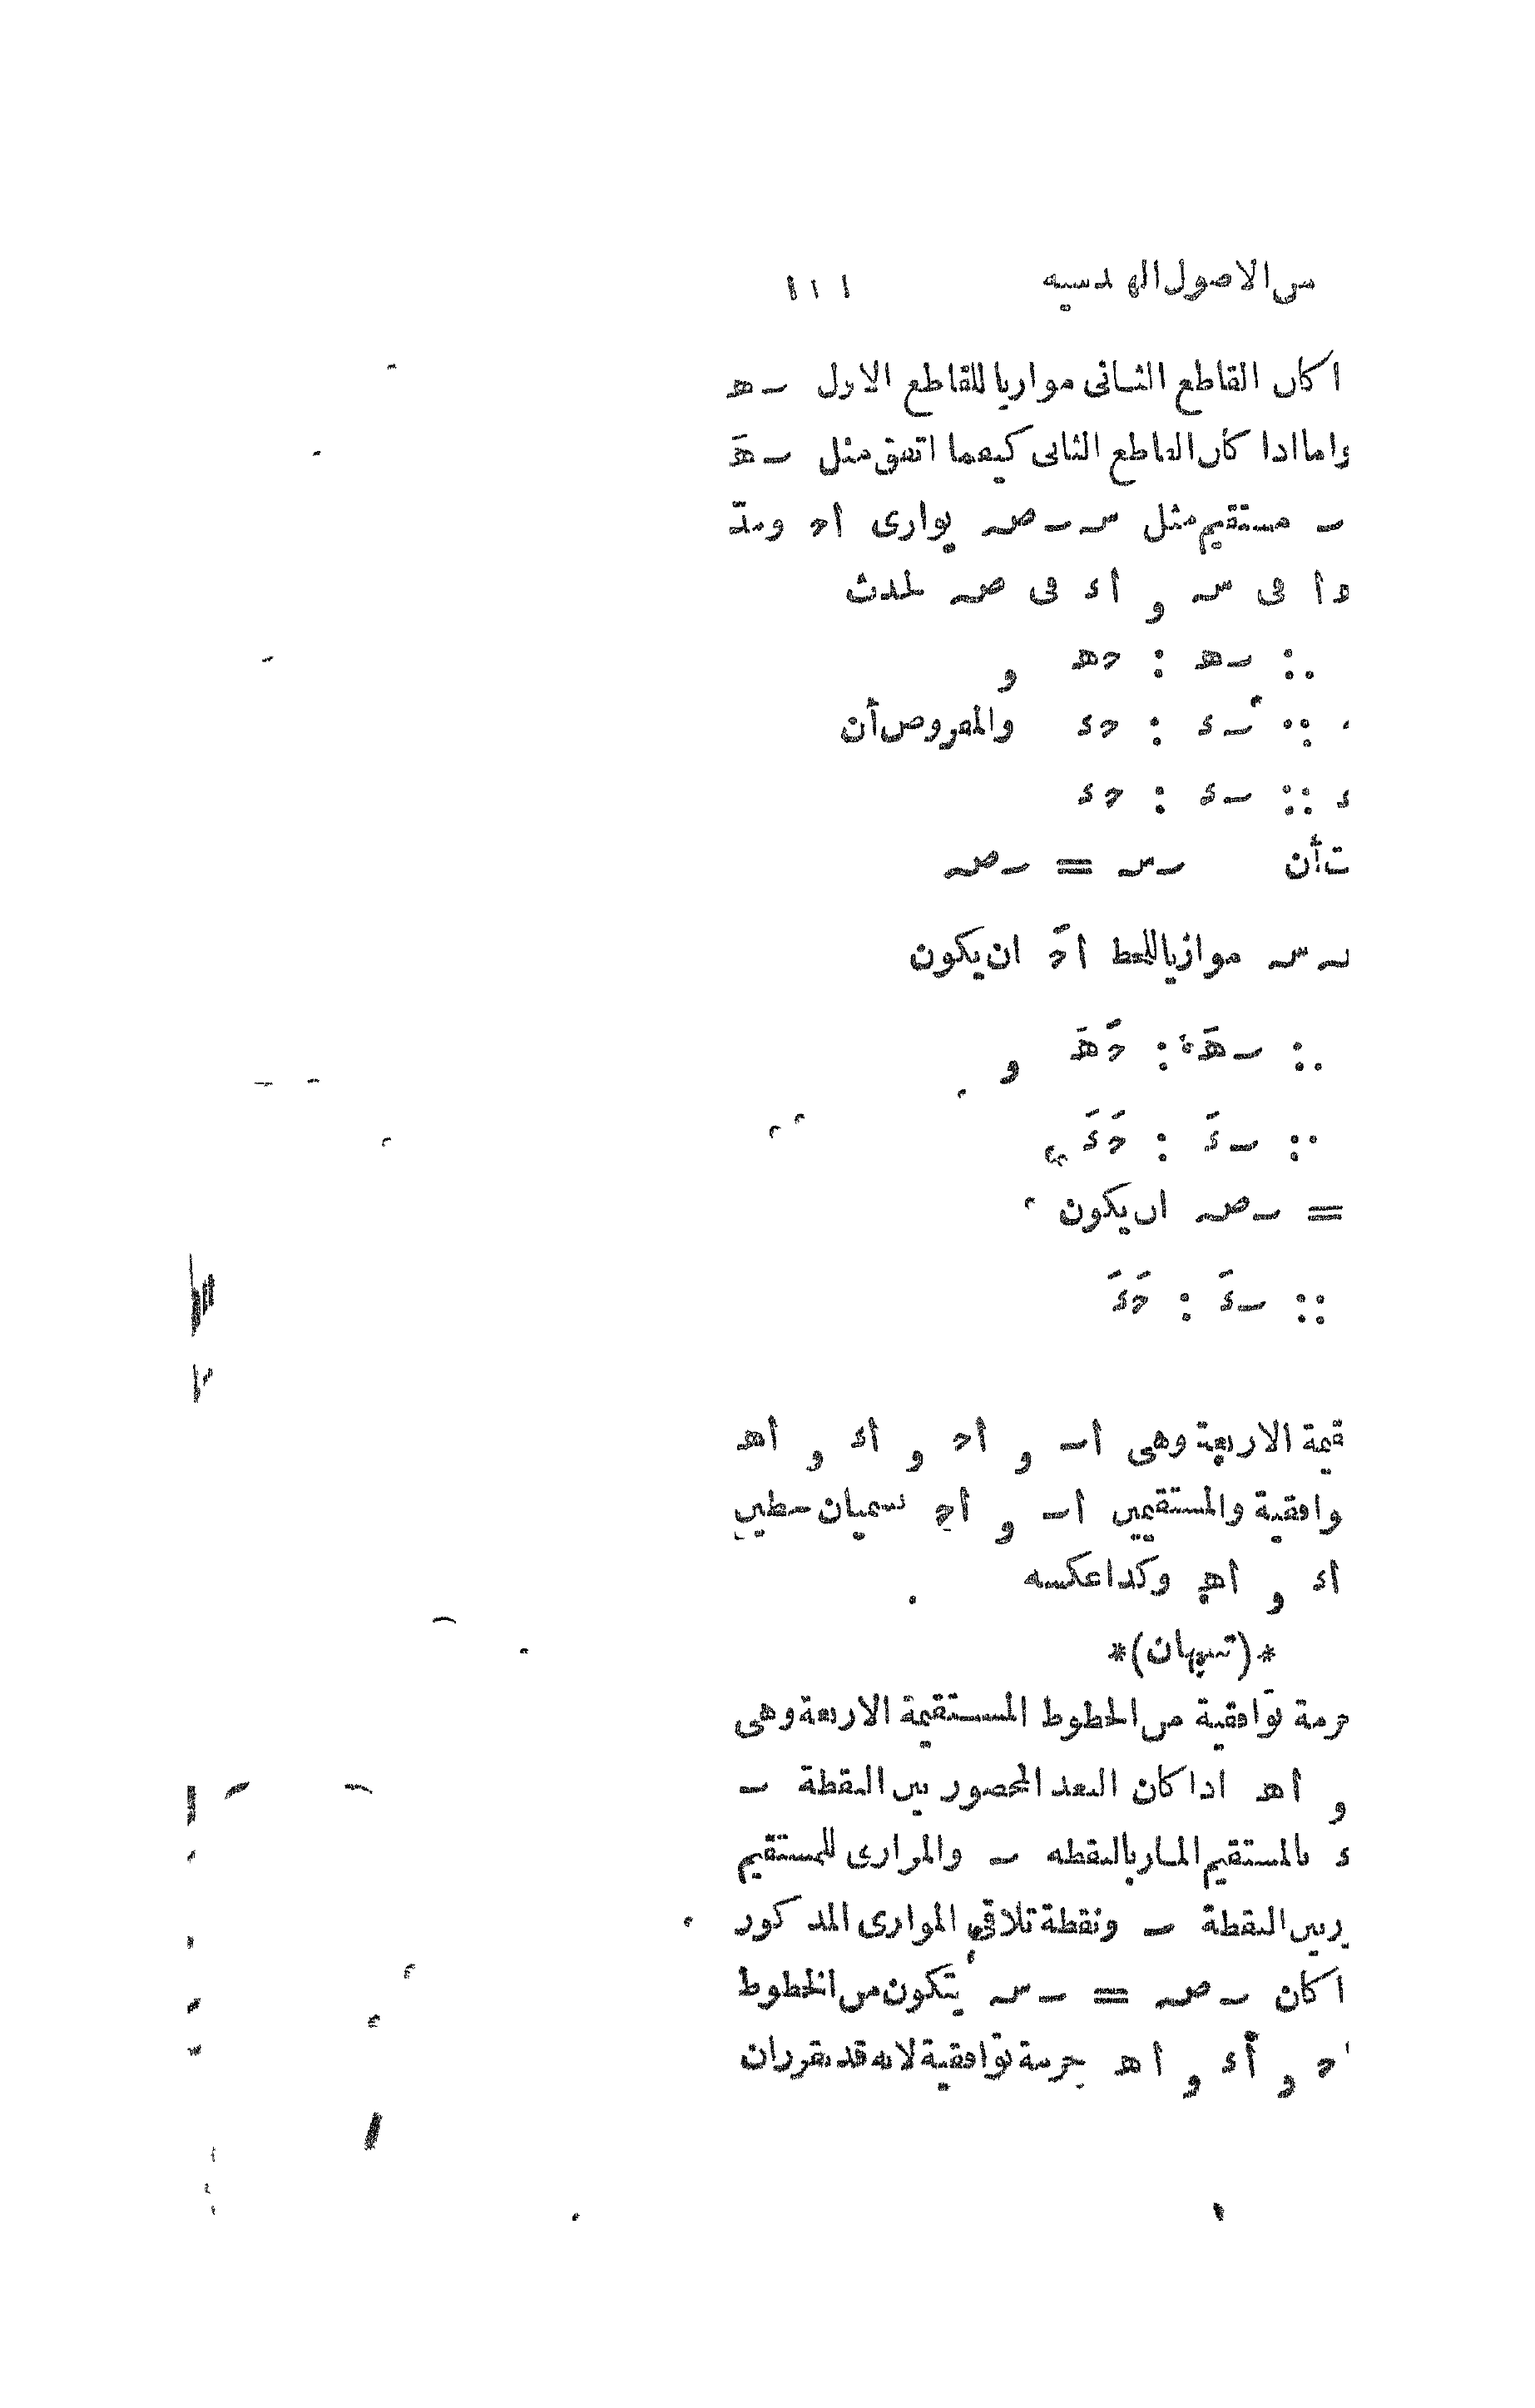 من الاصول الهندسيه ١١١
ا كان القاطع الثانى موازيا للقاطع الاول ‍ب‍ه
واما اذا كان القاطع الثانى كيفما اتفق مثل ‍ب‍هَ
ب مستقيم مثل س‍ب‍ص يوازى اح ومدّ
ه‍ا فى س و اء فى ص لحدث
:. ب‍ه : ح‍ه و
:: بء : حء والمفروض أن
ء :: بء : حء
ت أن بس = بص
ب س موازيا للخط احَ ان يكون
:. ب‍هَ : حَ‍هَ و
:: بءَ : حَءَ
= بص ان يكون
:: بءَ : حَءَ
قيمة الاربعة وهى اب و اح و اء و اه
وافقية والمستقيمين اب و اح يسميان خطين
اء و اه وكذا عكسه
*(تنبيهان)*
حزمة توافقية من الخطوط المستقيمة الاربعة وهى
و اه اذا كان البعد المحصور بين النقطة ب
ء بالمستقيم المار بالنقطه ب والموازى للمستقيم
بين النقطة ب ونقطة تلاقى الموازى المذكور
ا كان بص = بس يتكون من الخطوط
اح و اء و اه حزمة توافقية لانه قد تقرر ان